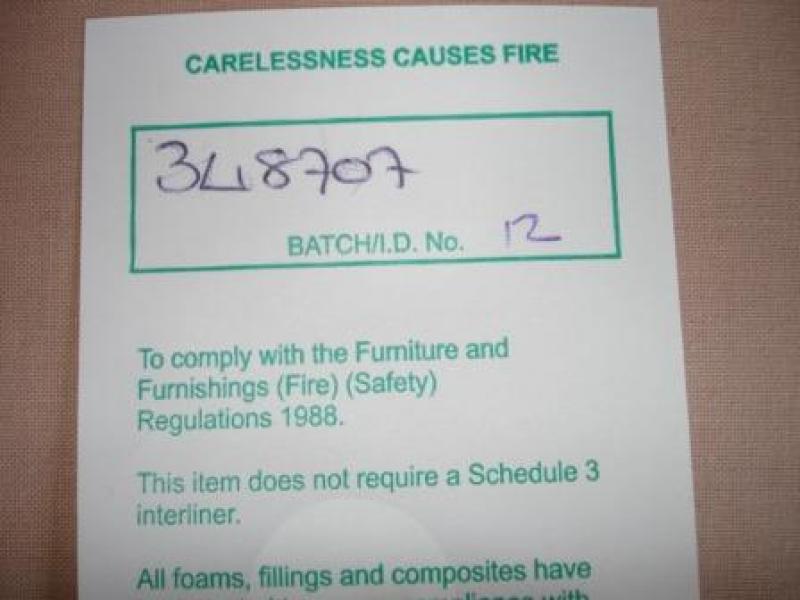 CARELESSNESS CAUSES FIRE
348707
BATCH/I.D. No. 12
To comply with the Furniture and
Furnishings (Fire) (Safety)
Regulations 1988.
This item does not require a Schedule 3
interliner.
All foams, fillings and composites have
compliance with